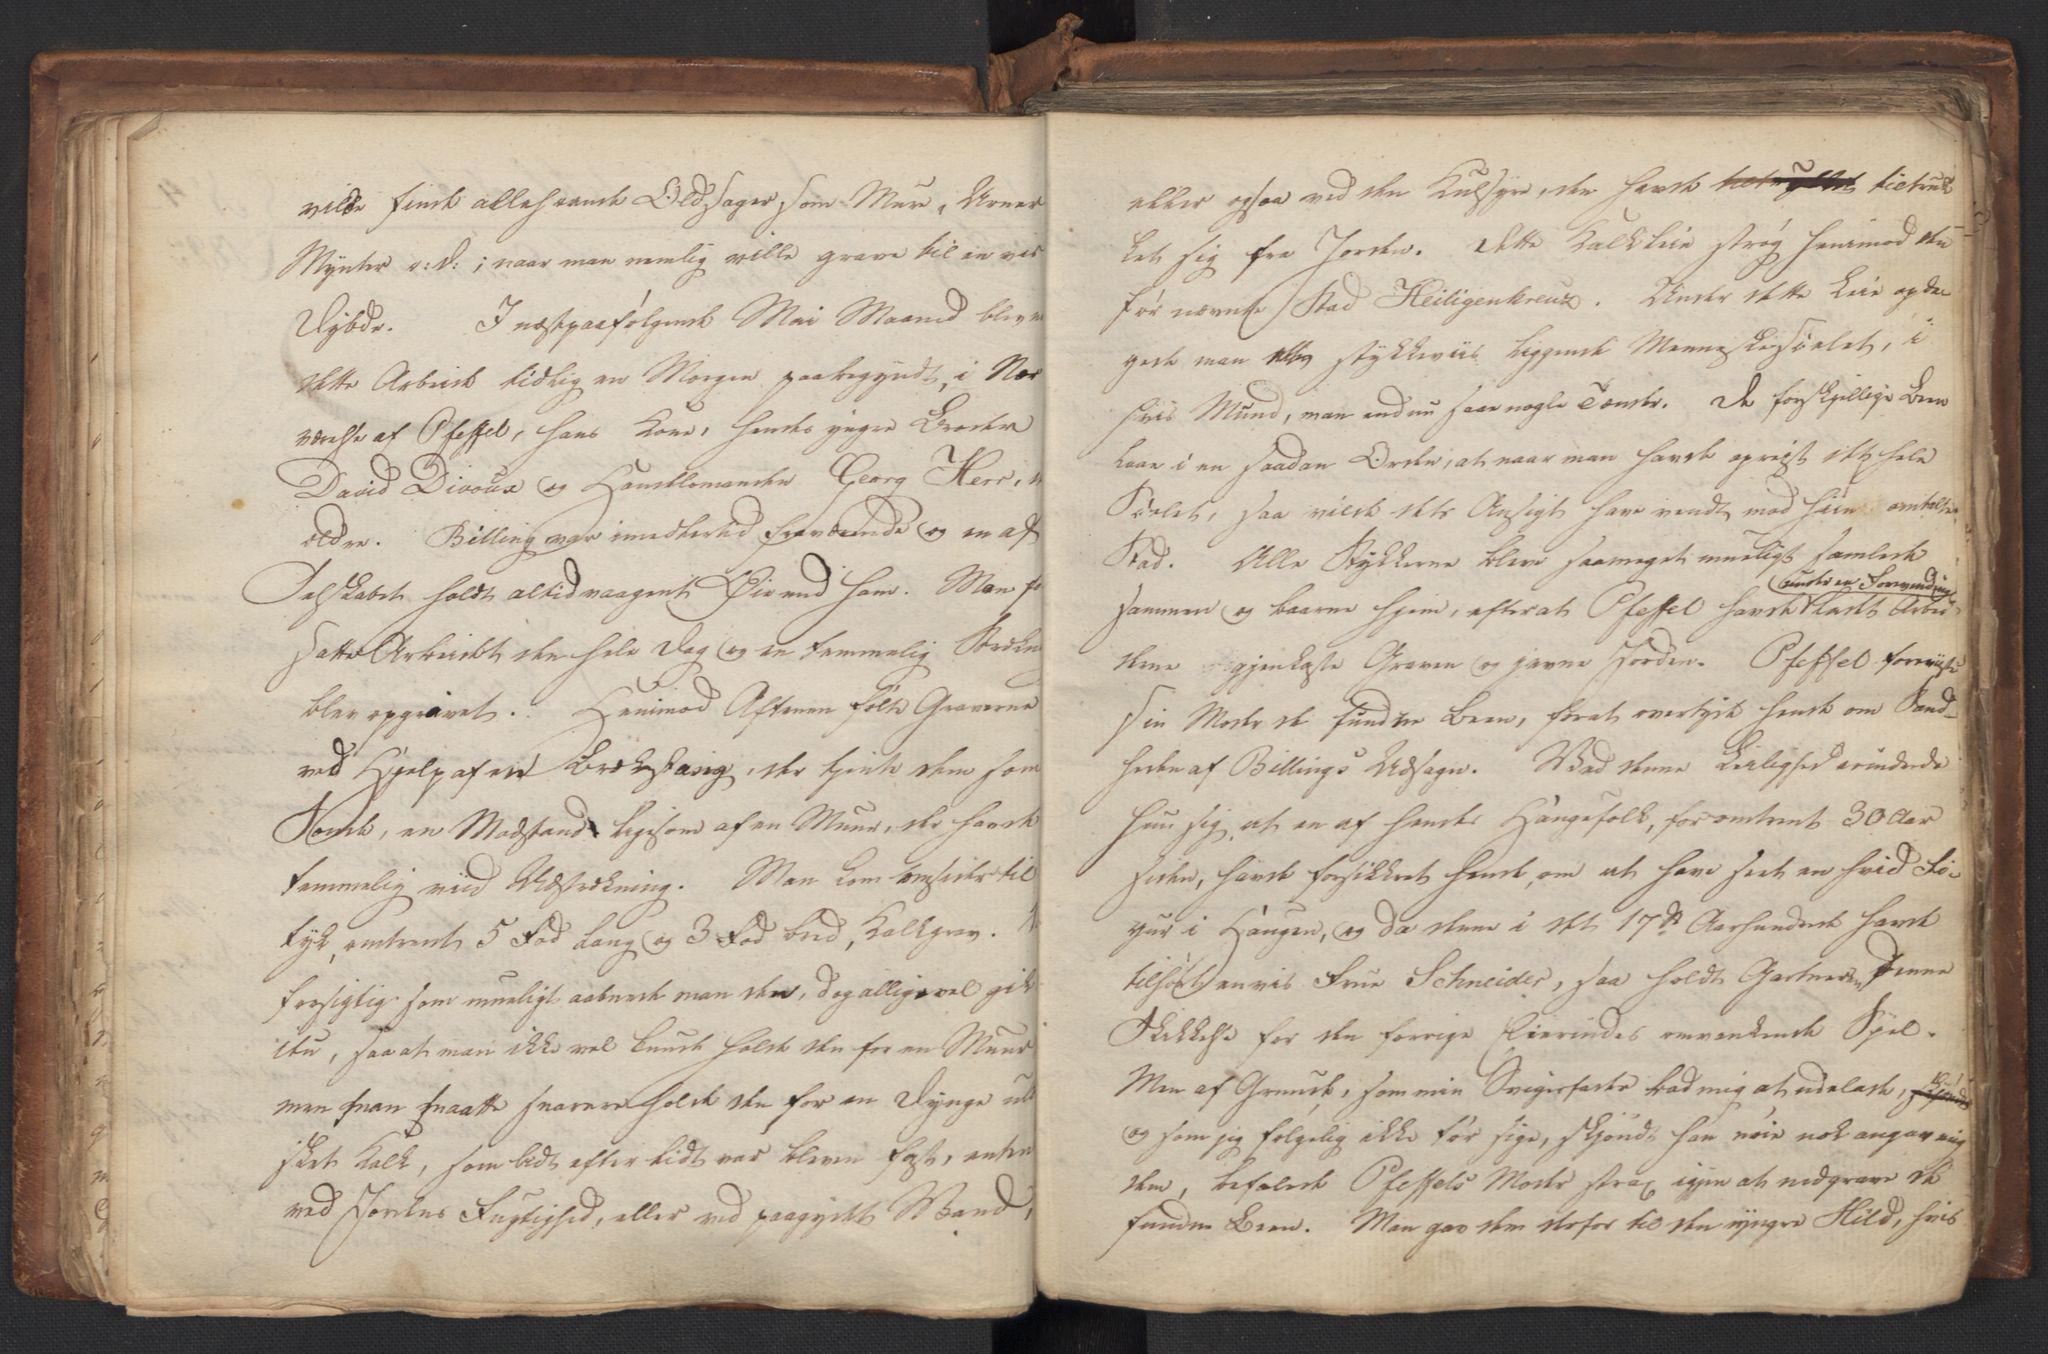 vilde finde allehaande Oldsager, som Mure, Urner
Mynter o: d: ; naar man nemlig vilde grave til en vis
Dybde. I næstpaafølgende Mai Maaned blev
dette Arbeide tidlig en Morgen paabegyndt, i Nær
værelse af Pfeffel, hans Kone, hendes yngre Broder
David Divoux og Haandlemanden Georg Herr, d
ældre. Billing var imidlertid fraværende og en af
Selskabet holdt altid vaagent Øie med ham. Man fo
satte Arbeidet den hele Dag og en temmelig Strækn
blev opgravet. Henimod Aftenen følte Graverne
ved Hjelp af en Brækstang, der tjente dem som
Sonde, en Modstand ligesom af en Muur, der havde
temmelig viid Udstrækning. Man kom omsider til
tyk, omtrent 5 Fod lang og 3 Fod bred, Kalkgrav.
forsigtig som mueligt aabnede man den, dog alligevel gik
itu, saa at man ikke vel kunde holde den for en Muur
men man maatte snarere holde den for en Dynge ul
sket Kalk, som lidt efter lidt var bleven fast, enten
ved Jordens Fugtighed, eller ved paagydt Vand,
eller ogsaa ved den Kulsyre, den havde tiltruk
ket sig fra Jorden. Dette Kalkleie strøg henimod den
før nævnte Stad Heiligenkreuz. Under dette Leie opda
gede man stykkeviis liggende Menneskeskelet, i
hvis Mund, man endnu saae nogle Tænder. De forskjellige Been
laae i en saadan Orden, at naar man havde opreist det hele
Skelet, saa vilde dets Ansigt have vendt mod hiin omtalte
Stad. Alle Stykkerne bleve saameget mueligt samlede
sammen og baarne hjem, efterat Pfeffel havde ladet Arbei
under en Forvending
derne igjenkaste Graven og jevne Jorden. Pfeffel foreviiste
sin Moder de fundne Been, forat overtyde hende om Sand-
heden af Billings Udsagn. Ved denne Leilighed erindrede
hun sig, at en af hendes Haugefolk, for omtrent 30 Aar
siden, havde forsikkret hende, om at have seet en hvid Fi-
gur i Haugen, og da denne i det 17de Aarhundrede havde
tilhørt en vis Frue Schneider, saa holdt Gartneren denne
Skikkelse for den forrige Eierindes omvankende Sjel.
Men af Grunde, som min Svigerfader bad mig at udelade,
og som jeg følgelig ikke tør sige, skjøndt han nøie nok angav mig
dem, befalede Pfeffels Moder strax igjen at nedgrave de
fundne Been. Man gav dem derfor til den yngre Hild, hvis